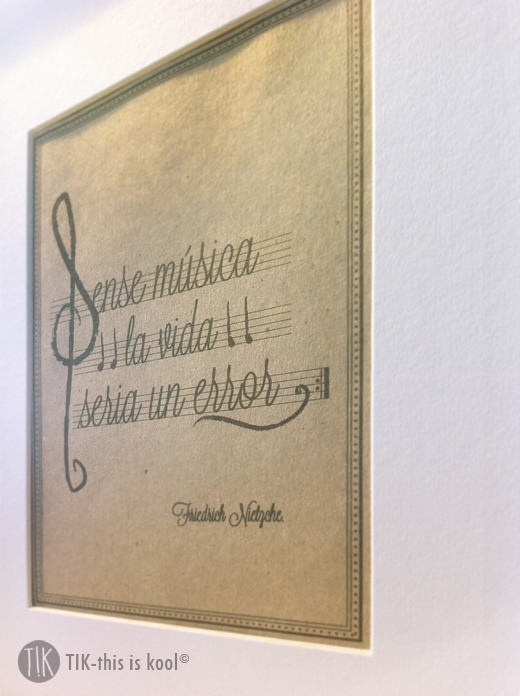 Sense música
la vida
seria un error
Friedrich Nietzche.
T!K TIK-this is kool©